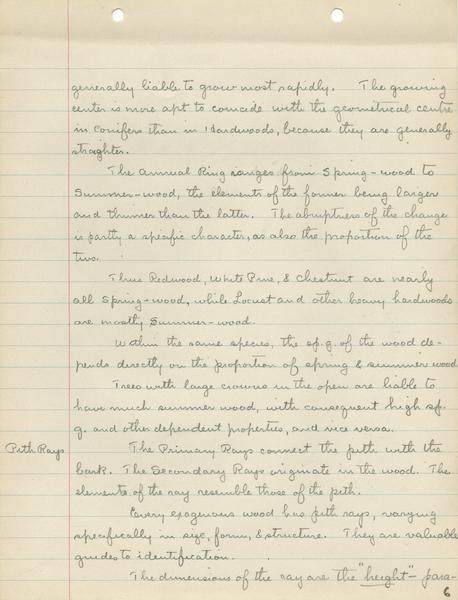 generally liable to grow most rapidly. The growing
center is more apt to coincide with the geometrical centre
in conifers than in Hardwoods, because they are generally
straighter.
The Annual Ring ranges from Spring-wood to
Summer-wood, the elements of the former being larger
and thinner than the latter. The abruptness of the change
is partly a specific character, as also the proportion of the
two.
Thus Redwood, White Pine, & Chestnut are nearly
all Spring-wood, while Locust and other heavy hardwoods
are mostly Summer-wood.
Within the same species, the sp.g. of the wood de-
pends directly on the proportion of spring & summer wood
Trees with large crowns in the open are liable to
have much summer wood, with consequent high sp.
g. and other dependent properties, and vice versa.
Pith Rays
The Primary Rays connect the pith with the
bark. The Secondary Rays originate in the wood. The
elements of the ray resemble those of the pith.
Every exogenous wood has pith rays, varying
specifically in size, form, & structure. They are valuable
guides to identification.
The dimensions of the ray are the "height" - para-
6